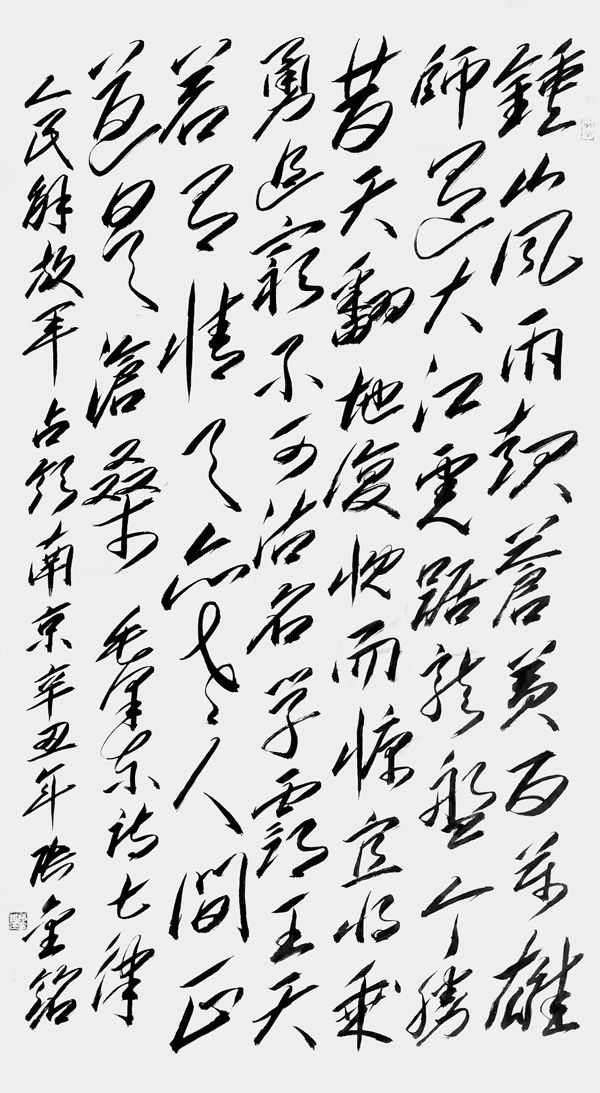 鍾山風雨起蒼黃百萬雄
師過大江虎踞龍盤今勝
昔天翻地復慨而慷宜将剩
勇追窮不可沽名学霸王天
若有情天亦老人間正
道是滄桑 毛澤东詩七律
人民解放军占領南京辛丑年張金銘